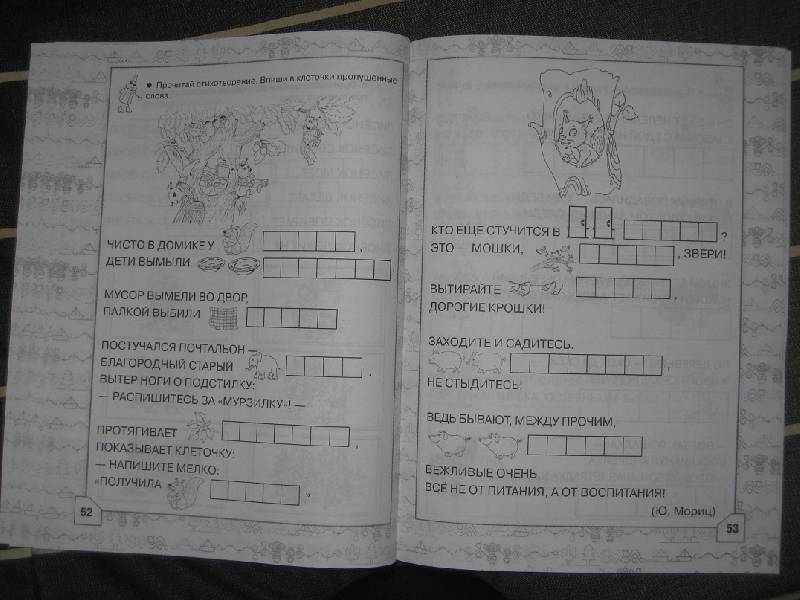 • Прочитай стихотворение. Впиши в клеточки пропущенные
слова.
ЧИСТО В ДОМИКЕ У ,
ДЕТИ ВЫМЫЛИ
МУСОР ВЫМЕЛИ ВО ДВОР,
ПАЛКОЙ ВЫБИЛИ .
ПОСТУЧАЛСЯ ПОЧТАЛЬОН –
БЛАГОРОДНЫЙ СТАРЫЙ .
ВЫТЕР НОГИ О ПОДСТИЛКУ:
– РАСПИШИТЕСЬ ЗА «МУРЗИЛКУ»! –
ПРОТЯГИВАЕТ ,
ПОКАЗЫВАЕТ КЛЕТОЧКУ:
– НАПИШИТЕ МЕЛКО:
«ПОЛУЧИЛА ».
52
КТО ЕЩЕ СТУЧИТСЯ В ?
ЭТО – МОШКИ, , ЗВЕРИ!
ВЫТИРАЙТЕ ,
ДОРОГИЕ КРОШКИ!
ЗАХОДИТЕ И САДИТЕСЬ.
,
НЕ СТЫДИТЕСЬ!
ВЕДЬ БЫВАЮТ, МЕЖДУ ПРОЧИМ,
ВЕЖЛИВЫЕ ОЧЕНЬ.
ВСЁ НЕ ОТ ПИТАНИЯ, А ОТ ВОСПИТАНИЯ!
(Ю. Мориц)
53